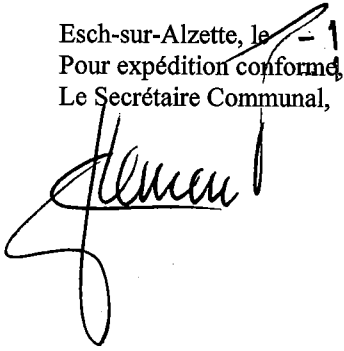 Esch-sur-Alzette, le - 1
Pour expédition conforme,
Le Secrétaire Communal,